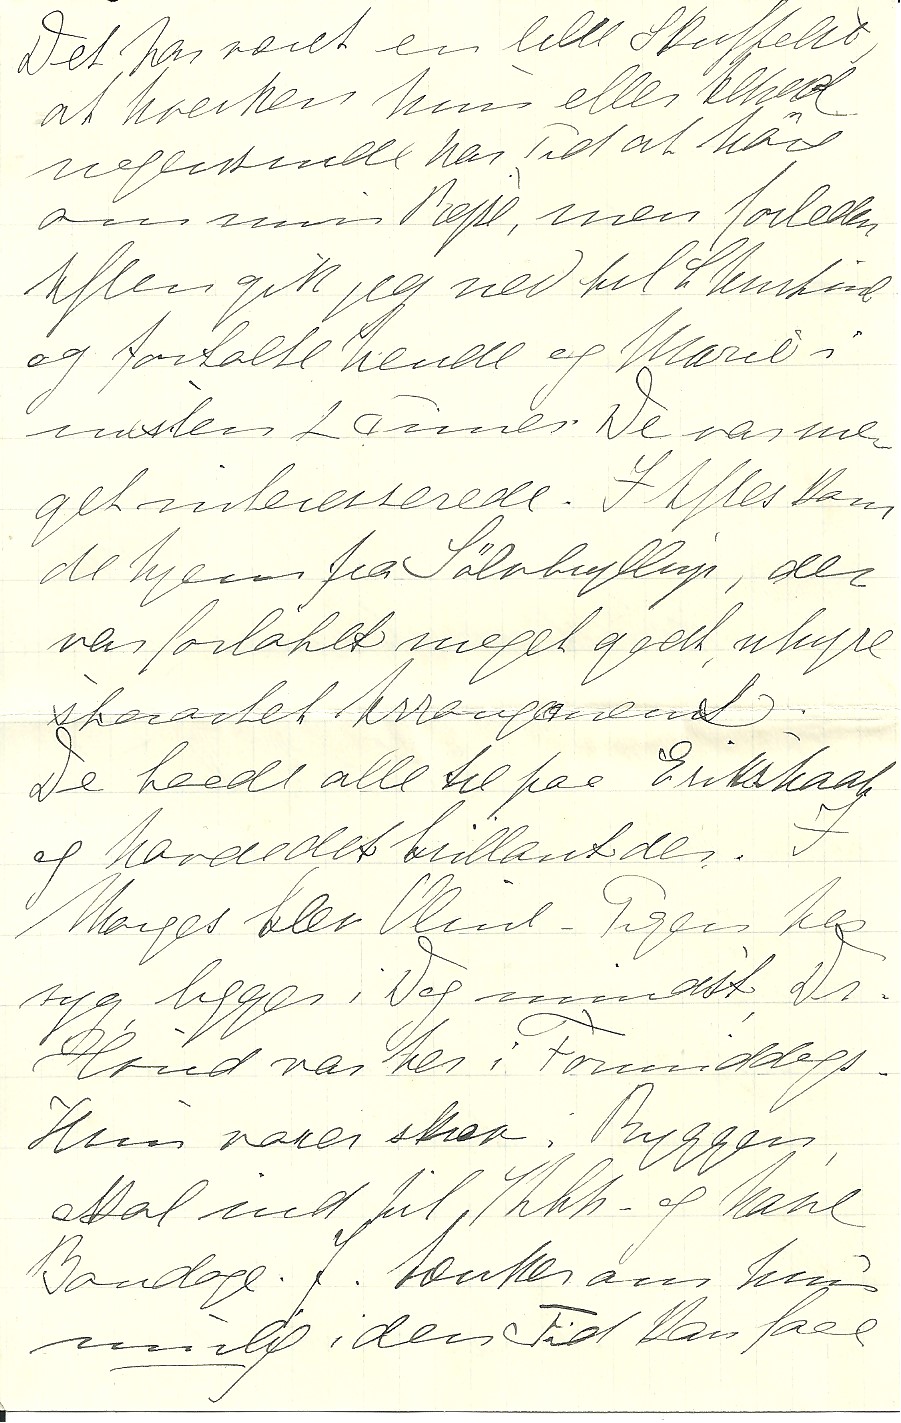 Det har været en lille Skuffelse,
at hverken hun eller Alhed
nogensinde har Tid at høre
om min Rejse, men forleden
Aften gik jeg ned til Christine
og fortalte hende og Marie i
næsten 2 Timer. De var me-
get interesserede. I Aftes kom
de hjem fra Sölvbryllup, der
var forløbet meget godt, uhyre
storartet Arrangement.
De boede alle tre paa Erikshaab
og havde det brillant der. I
Morges blev Oline - Pigen her
syg, ligger i Dag mindst, Dr.
var her i Formiddags.
Hun voxer skæv i Ryggen,
skal ind til Kbh. og have
Bandage. J. tænker om hun
mulig i den Tid kan faae